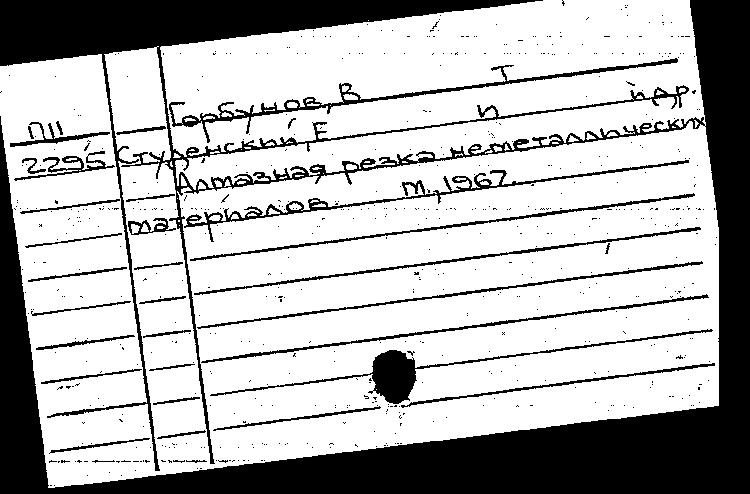 П11 Горбунов, В Т
2295 Студенский, Е П и др.
Алмазная резка неметаллических
материалов М., 1967.